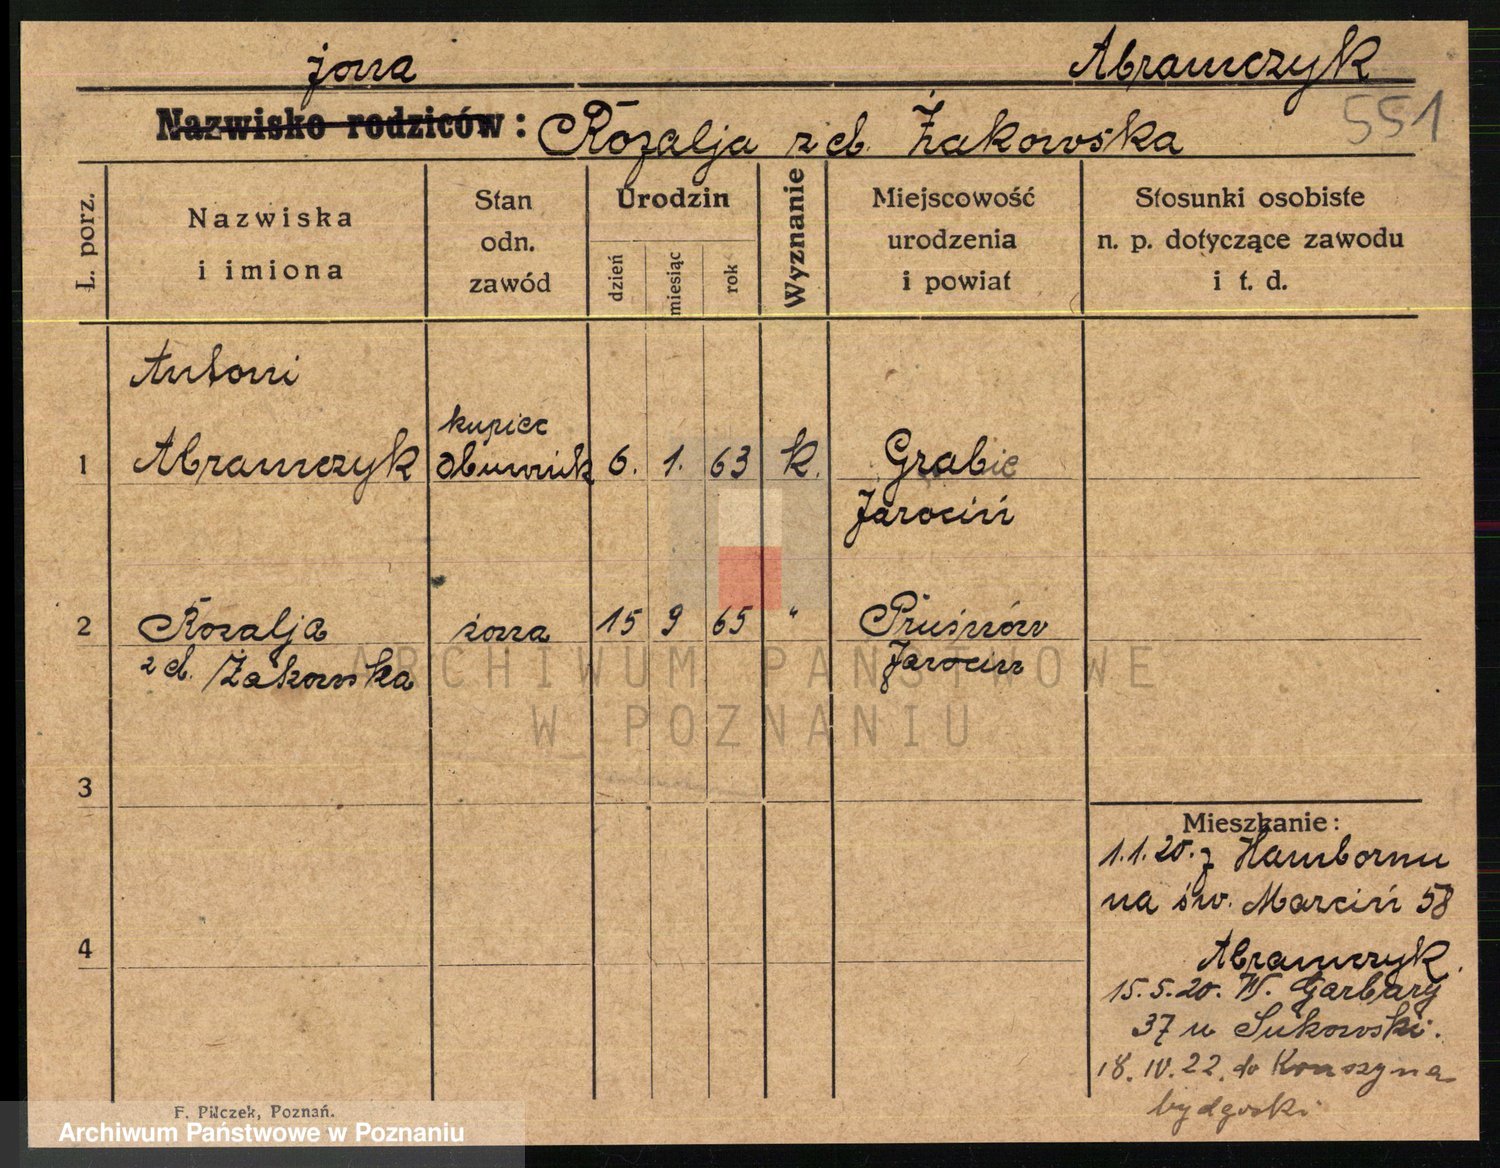 żona Abramczyk
551
Nazwisko rodziców: Rozalja z d. Żakowska
L. porz.
Nazwiska
i imiona
Stan
odn.
zawód
Urodzin
dzień
miesiąc
rok
Wyznanie
Miejscowość
urodzenia
i powiat
Stosunki osobiste
n. p. dotyczące zawodu
i t. d.
Antoni
kupiec
1 Abramczyk 6. 1. 63 k. Grabie
Jarociń
2 Rozalja żona 15 9 65 " Prusinów
z d. Żakowska Jarocin
3
4
Mieszkanie:
1.1.20. z Hambornu
na św. Marcin 58
Abramczyk.
15.5.20. W. Garbary
37 u Sukowski.
18.IV.22. do
bydgoski
F. Pilczek, Poznań.
ARCHIWUM PAŃSTWOWE
W POZNANIU
Archiwum Państwowe w Poznaniu